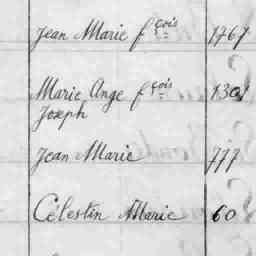 Jean Marie fçois 1767
Marie Ange fçois
Joseph
Jean Marie 777
Célestin Marie 60